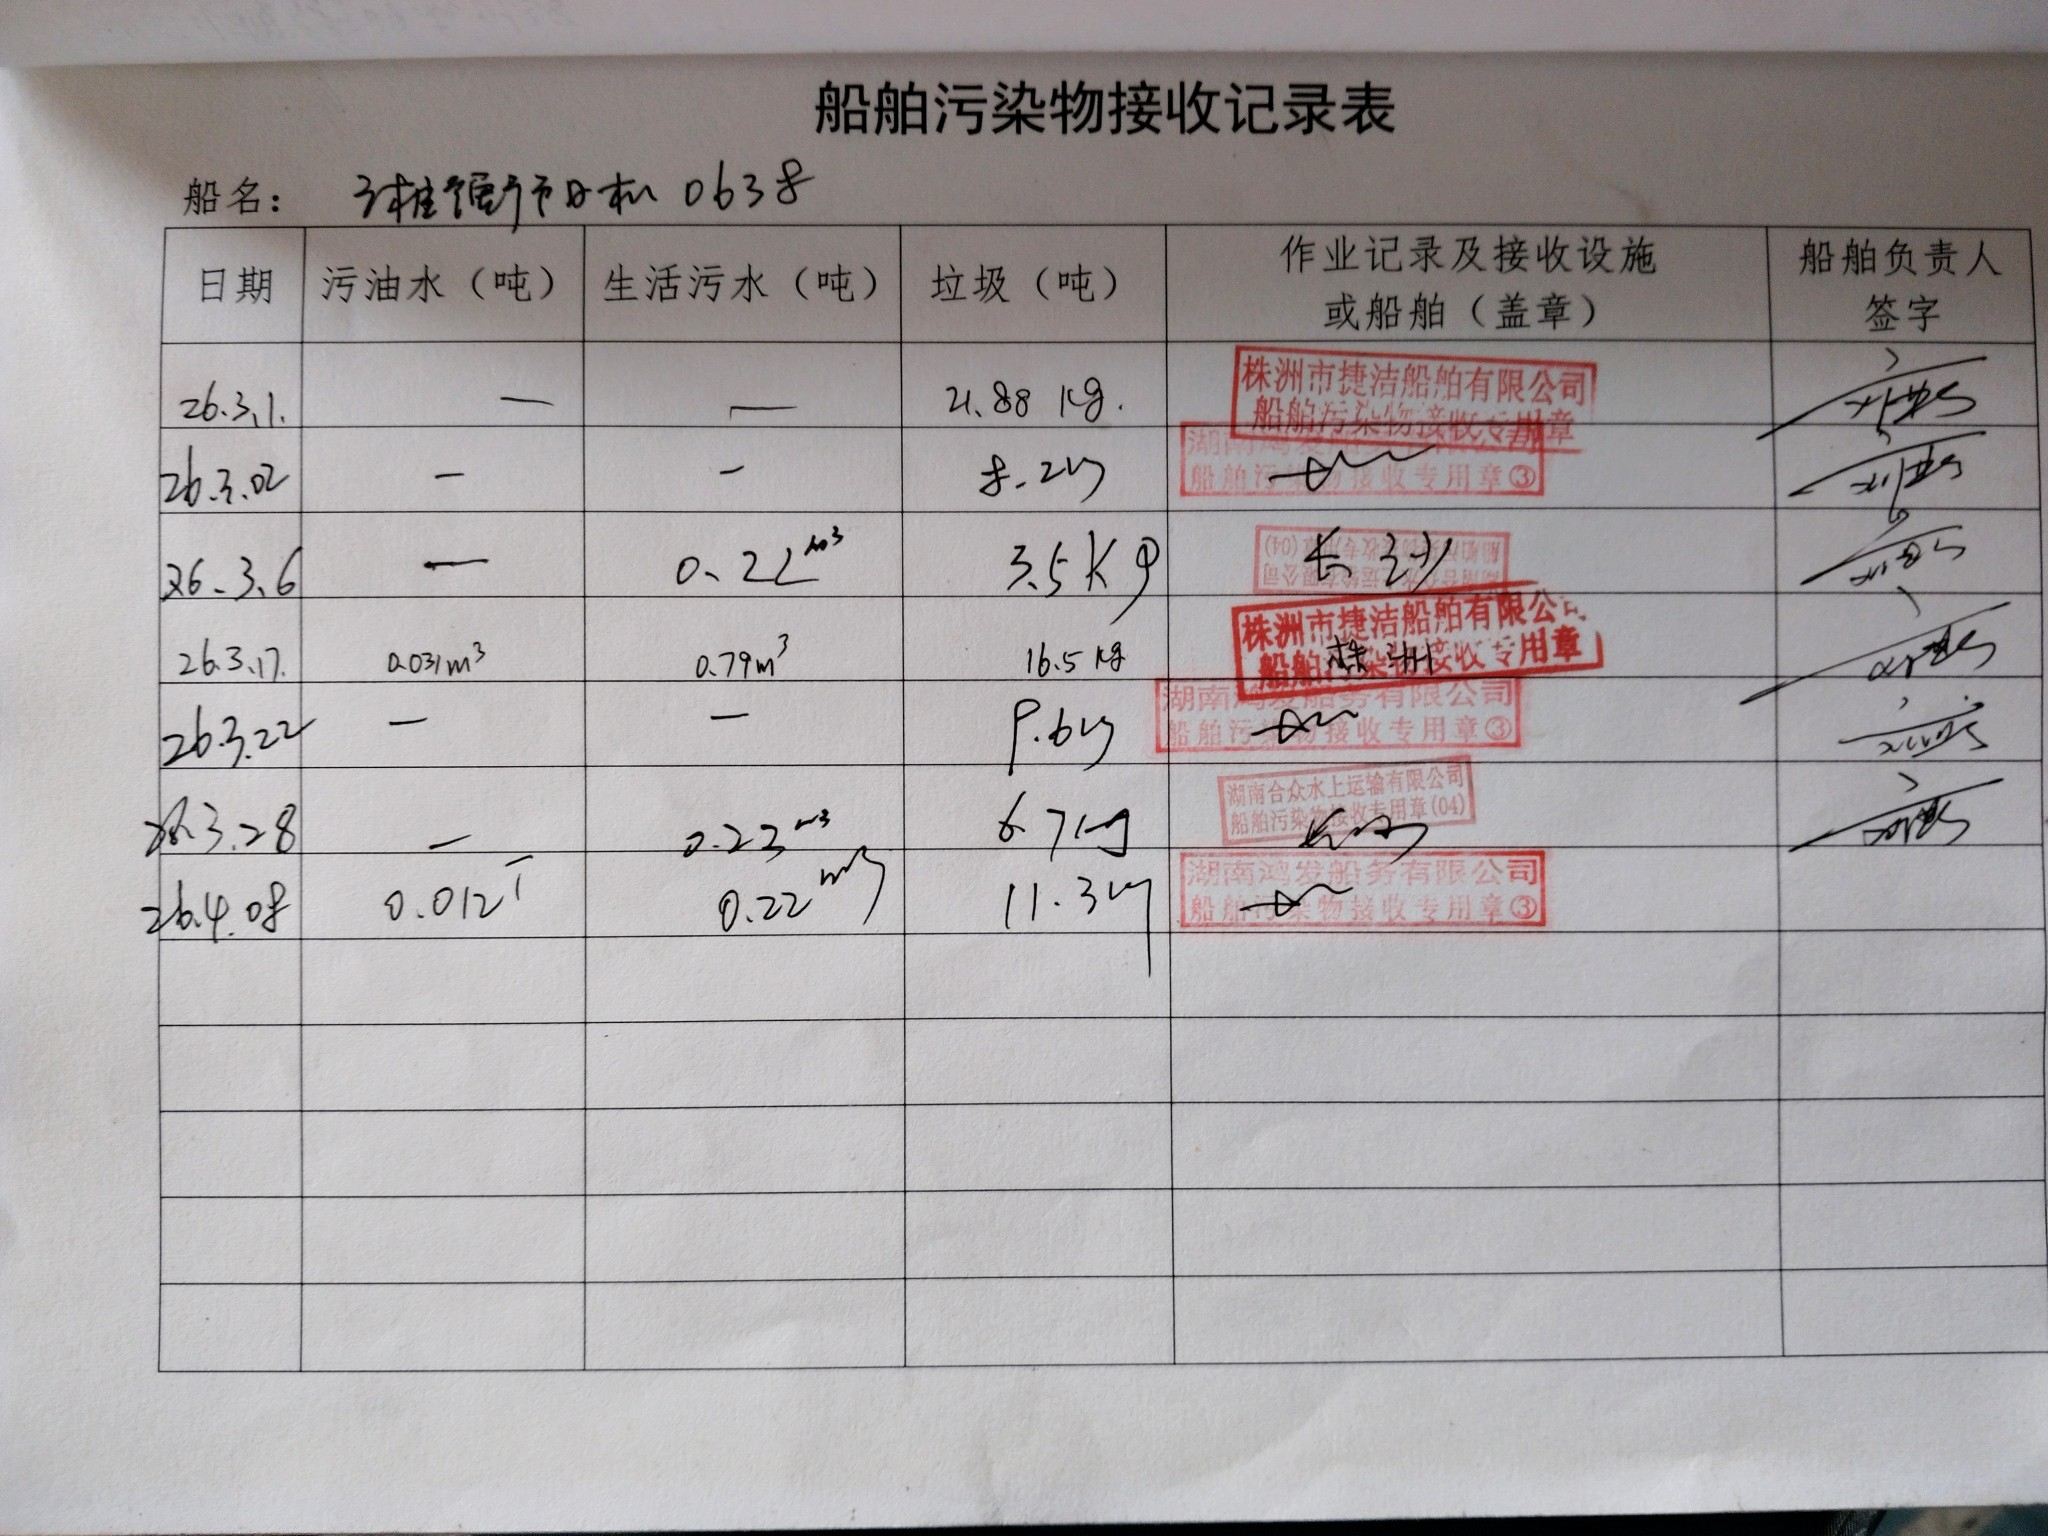 船舶污染物接收记录表
船名： 0638
日期 污油水（吨） 生活污水（吨） 垃圾（吨） 作业记录及接收设施或船舶（盖章） 船舶负责人签字
26.3.1. — — 21.88 kg. 株洲市捷洁船舶有限公司 船舶污染物接收专用章
26.3.02 — — 8.2kg 湖南鸿发船务有限公司 船舶污染物接收专用章③
26.3.6 — 0.22m³ 3.5Kg 湖南合众水上运输有限公司 船舶污染物接收专用章(04) 长沙
26.3.17. 0.031m³ 0.79m³ 16.5kg 株洲市捷洁船舶有限公司 船舶污染物接收专用章 株洲
26.3.22 — — 9.6kg 湖南鸿发船务有限公司 船舶污染物接收专用章③
26.3.28 — 0.23m³ 6.7kg 湖南合众水上运输有限公司 船舶污染物接收专用章(04) 长沙
26.4.08 0.012T 0.22m³ 11.3kg 湖南鸿发船务有限公司 船舶污染物接收专用章③